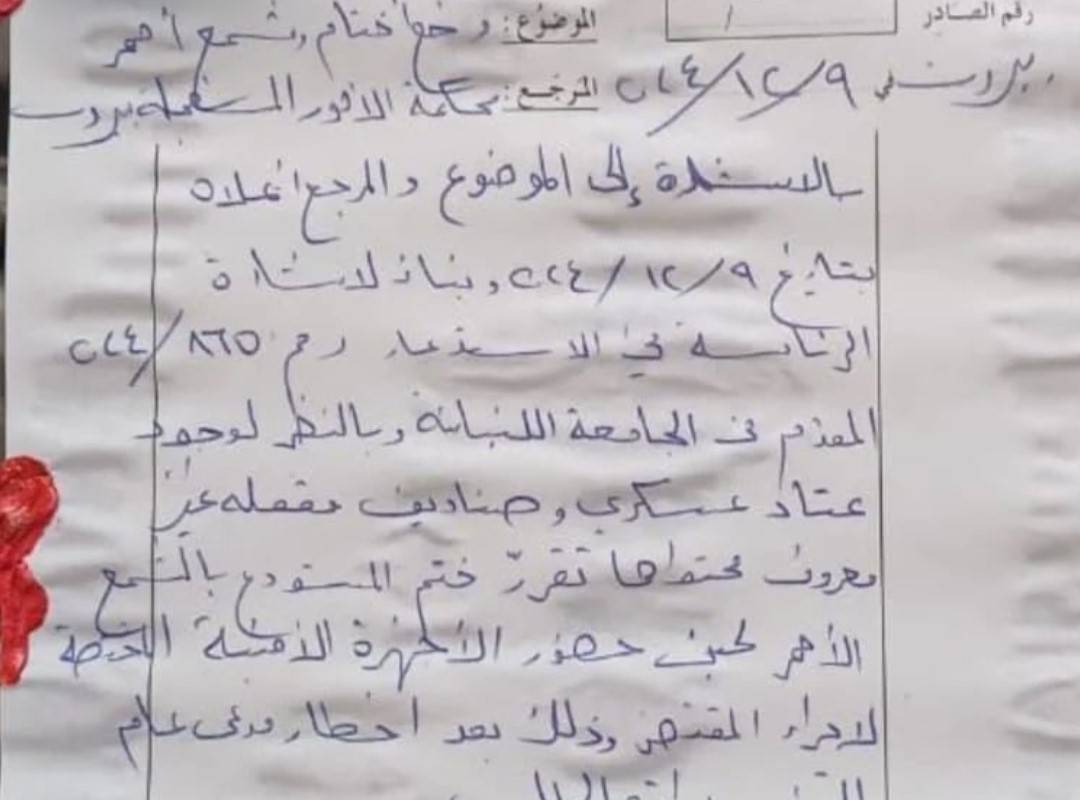 رقم الصادر
/
الموضوع: وضع ختام وشمع أحمر
بيروت في ٩/١٢/٢٠٢٤
المرجع: محكمة الأمور المستعجلة بيروت
بالاستناد إلى الموضوع والمرجع أعلاه
بتاريخ ٩/١٢/٢٠٢٤، وبناء لاشارة
الرئاسة في الاستدعاء رقم ٨٦٥/٢٠٢٤
المقدم من الجامعة اللبنانية وبالنظر لوجود
عتاد عسكري وصناديق مقفله غير
معروف محتواها تقرّر ختم المستودع بالشمع
الأحمر لحين حضور الأجهزة الأمنية المختصة
لاجراء المقتضى وذلك بعد اخطار مدعي عام